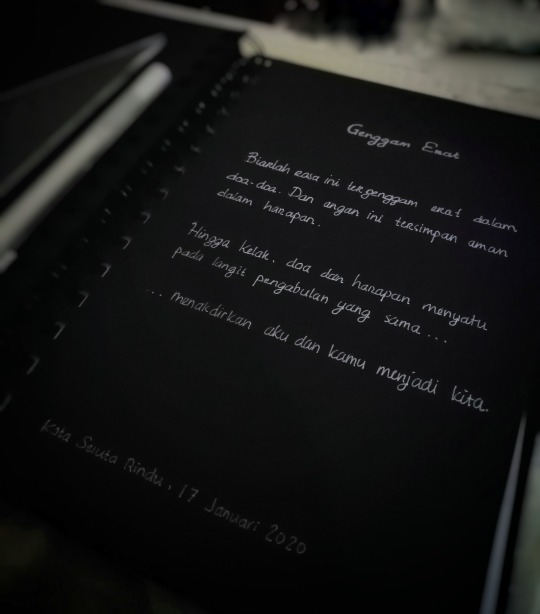 Genggam Erat
Biarlah rasa ini tergenggam erat dalam
doa-doa. Dan angan ini tersimpan aman
dalam harapan.
Hingga kelak, doa dan harapan menyatu
pada langit pengabulan yang sama...
... menakdirkan aku dan kamu menjadi kita.
Kota Sejuta Rindu, 17 Januari 2020